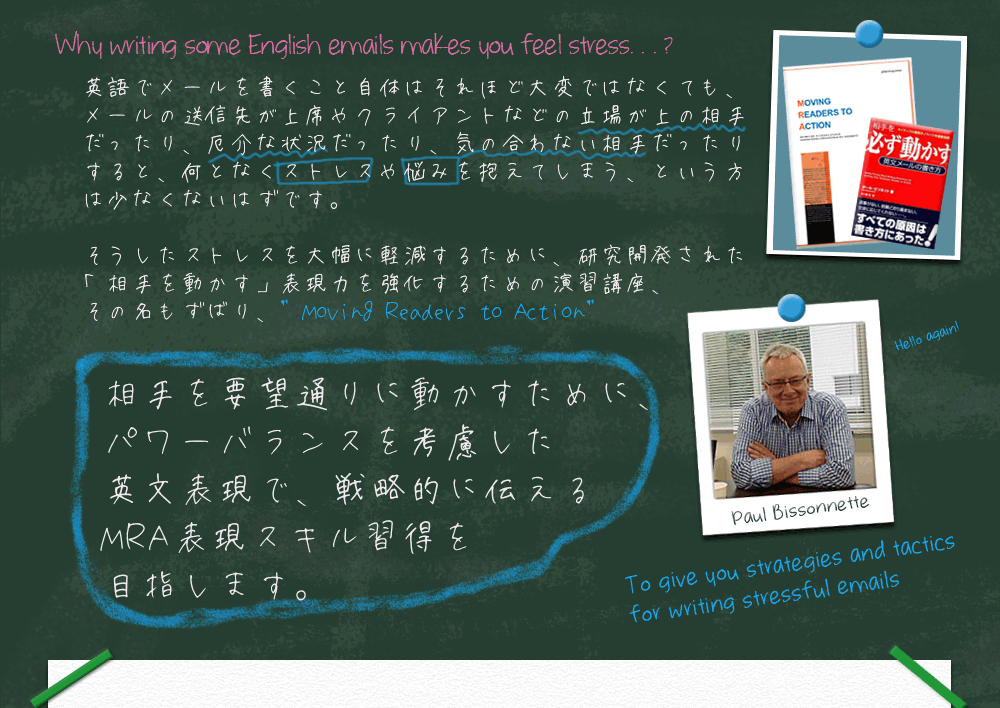 Why writing some English emails makes you feel stress...?
英語でメールを書くこと自体はそれほど大変ではなくても、
メールの送信先が上席やクライアントなどの立場が上の相手
だったり、厄介な状況だったり、気の合わない相手だったり
すると、何となくストレスや悩みを抱えてしまう、という方
は少なくないはずです。
そうしたストレスを大幅に軽減するために、研究開発された
「相手を動かす」表現力を強化するための演習講座、
その名もずばり、"Moving Readers to Action"
相手を要望通りに動かすために、
パワーバランスを考慮した
英文表現で、戦略的に伝える
MRA表現スキル習得を
目指します。
MOVING
READERS TO
ACTION
相手を
必ず動かす
英文メールの書き方
すべての原因は
書き方にあった!
Hello again!
Paul Bissonnette
To give you strategies and tactics
for writing stressful emails